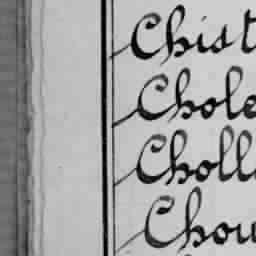 Chist
Chole
Choll
Chou